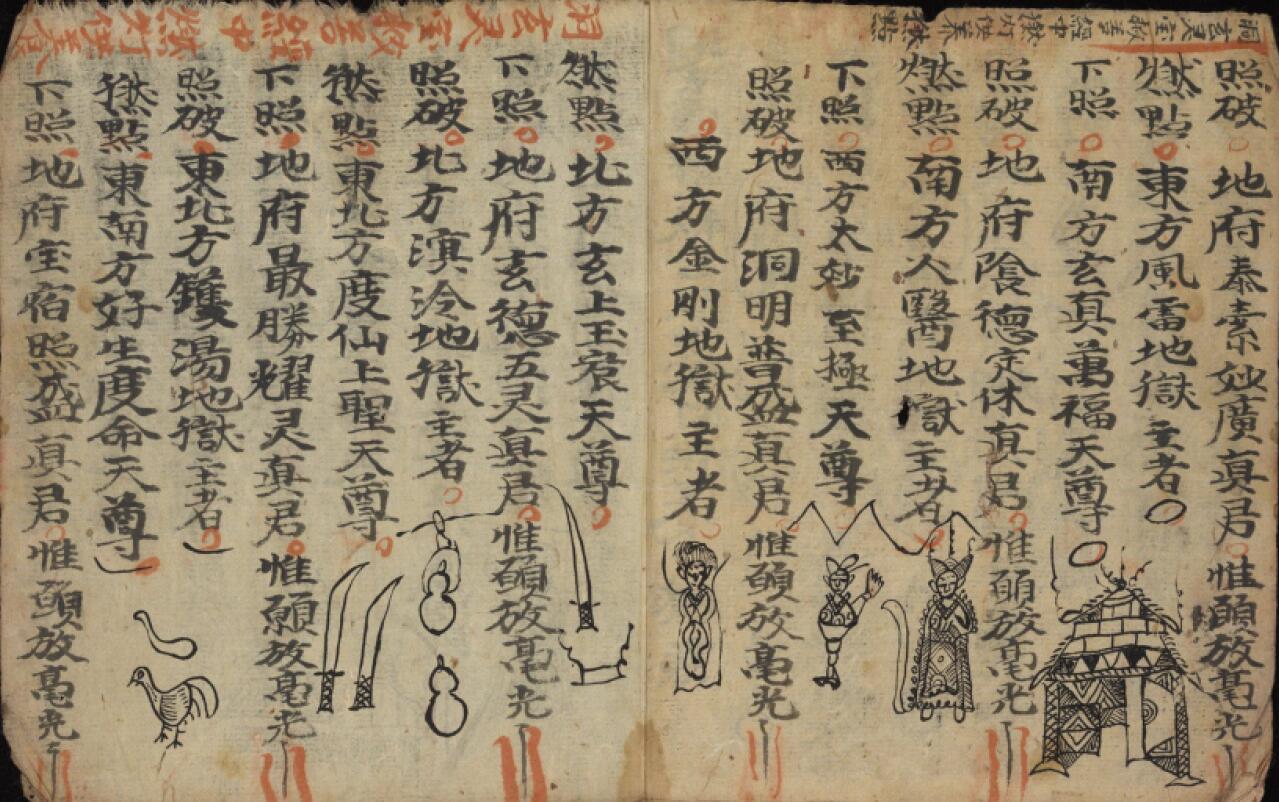 洞玄灵宝救苦經中燃灯
照破 地府泰素妙廣真君 惟願放毫光
燃點 東方風雷地獄主者
下照 南方玄真萬福天尊
照破 地府陰德定休真君 惟願放毫光
燃點 南方人醫地獄主者
下照 西方太妙至極天尊
照破 地府洞明普盛真君 惟願放毫光
西方金剛地獄主者
洞玄灵宝救苦經中燃灯
燃點 北方玄上玉宸天尊
下照 地府玄德五灵真君 惟願放毫光
照破 北方溟泠地獄主者
燃點 東北方度仙上聖天尊
下照 地府最勝耀灵真君 惟願放毫光
照破 東北方鑊湯地獄主者
燃點 東南方好生度命天尊
下照 地府宝宿照盛真君 惟願放毫光